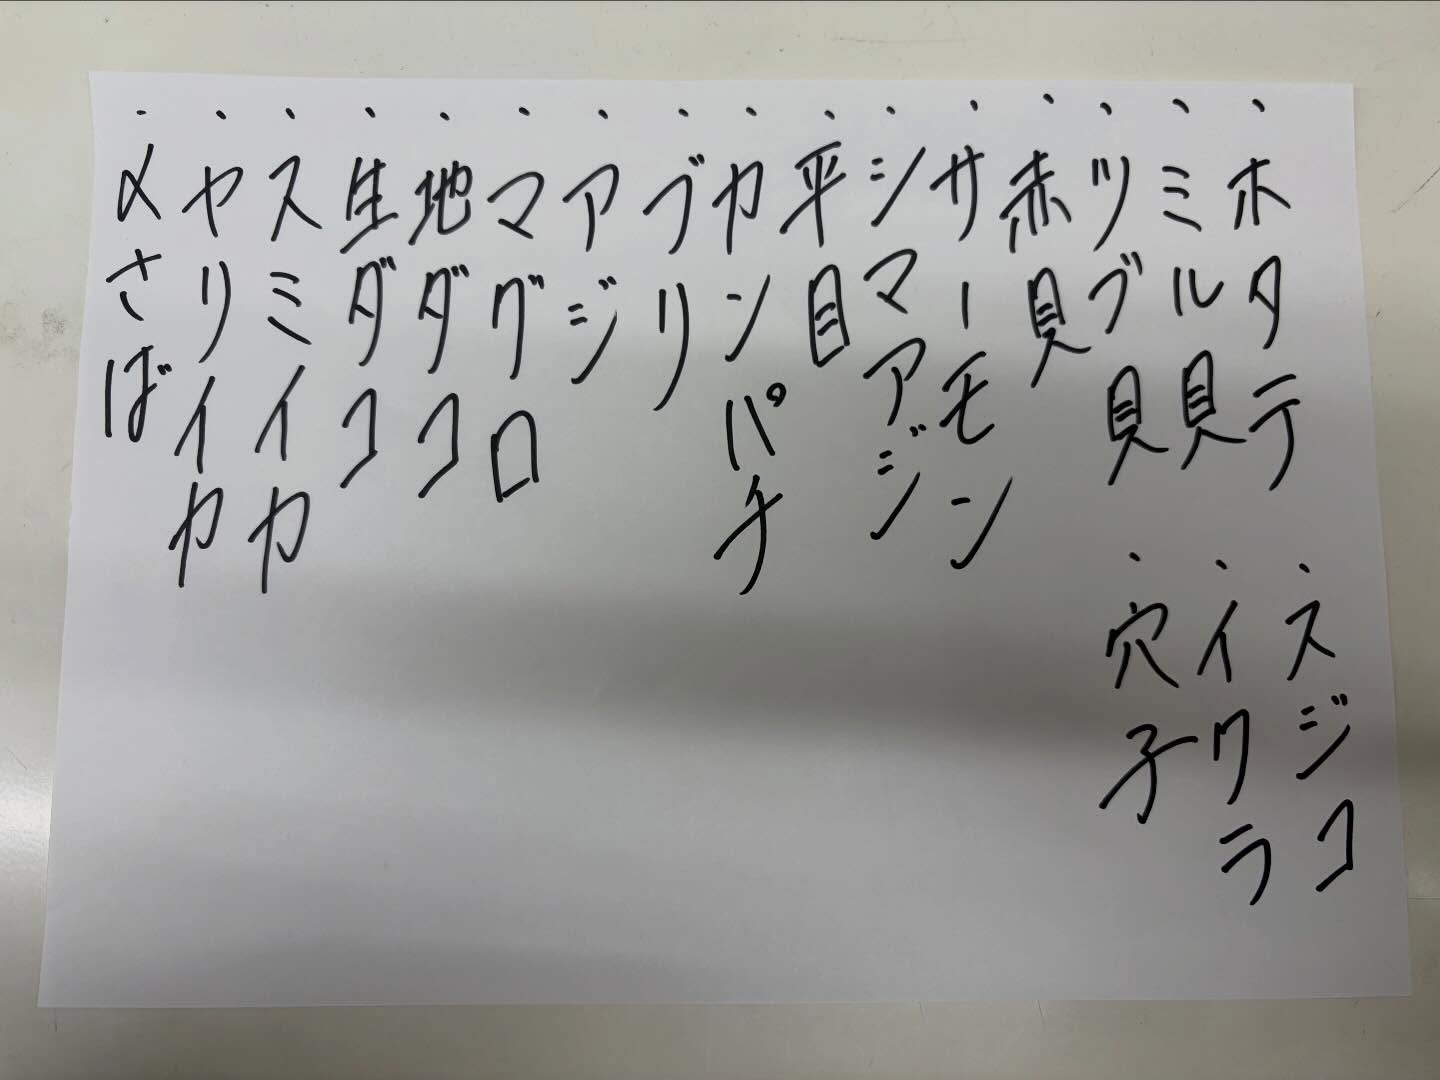 ・ホタテ
・ミル貝
・ツブ貝
・赤貝
・サーモン
・シマアジ
・平目
・カンパチ
・ブリ
・アジ
・マグロ
・地ダコ
・生ダコ
・スミイカ
・ヤリイカ
・〆さば
・スジコ
・イクラ
・穴子